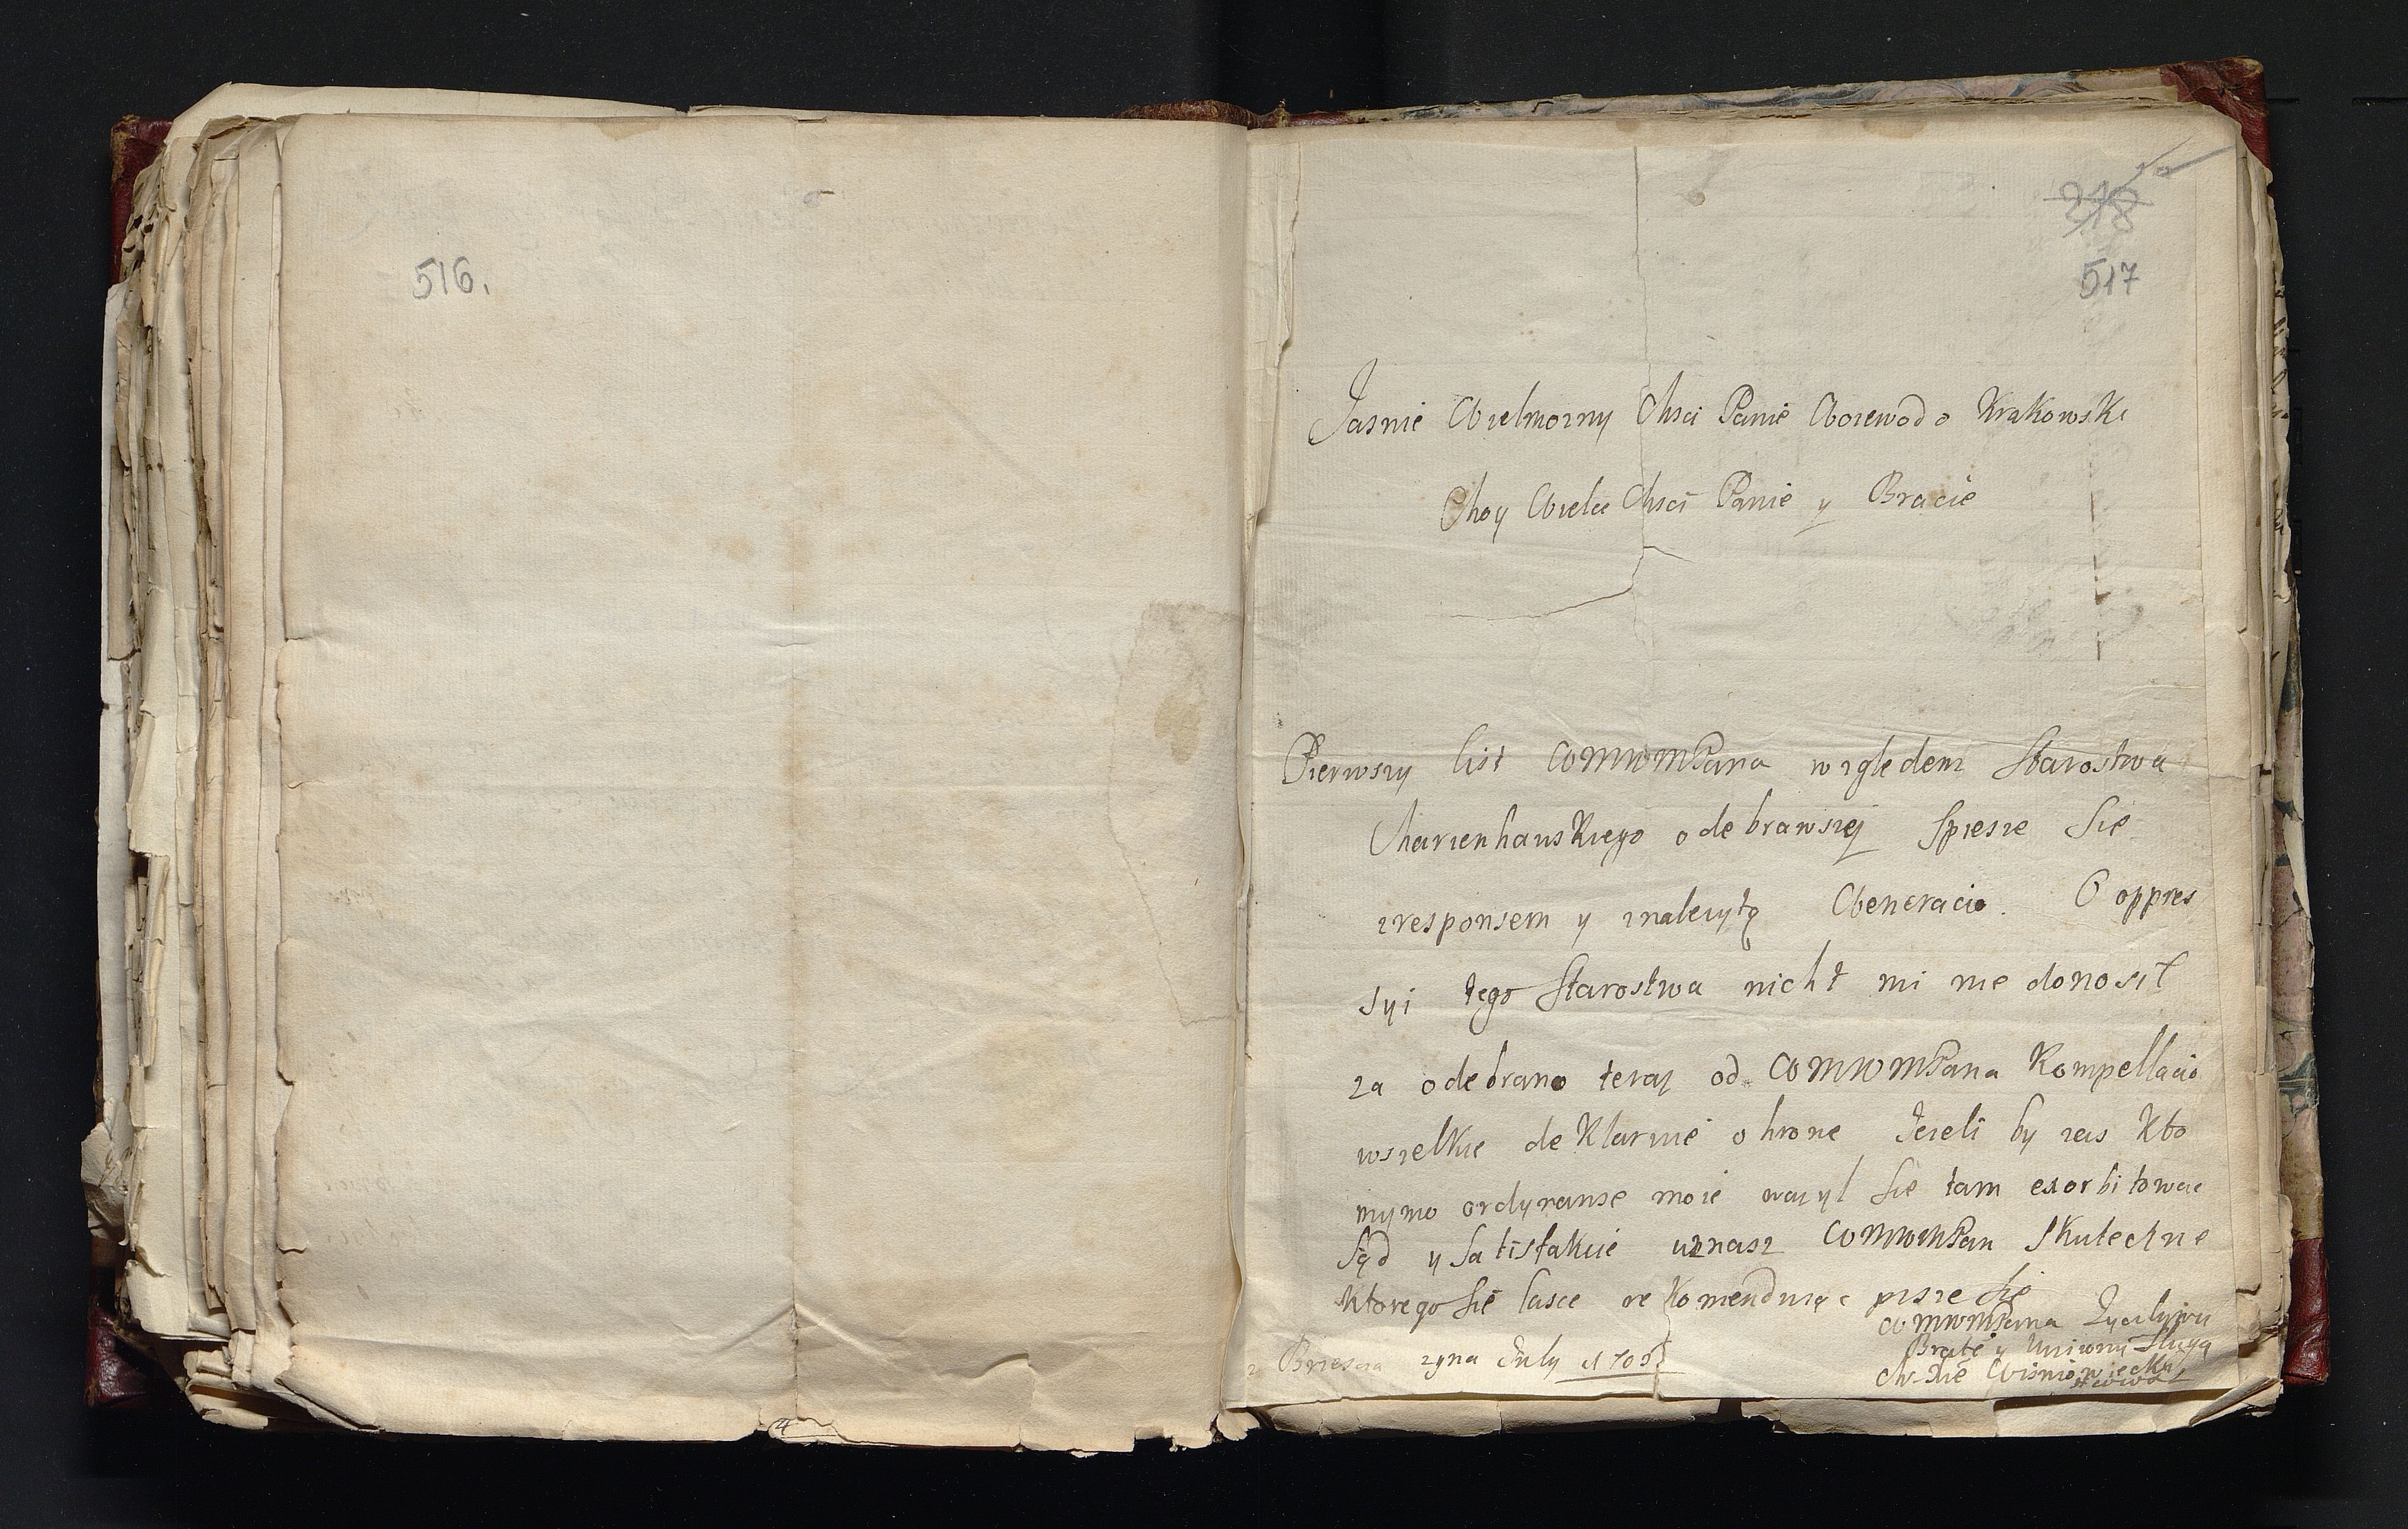 516.
218
517
Jasnie Wielmozny Mści Panie Woiewodo Krakowski
Moy Wielce Mści Panie y Bracie
Pierwszy list WMMWMPana względem Starostwa
Marienhauskiego odebrawszy spiesze się
zresponsem y znależytą Weneracio. O oppres
syi tego Starostwa nicht mi nie donosił
za odebrano teraz od WMMWMPana Kompellacio
wszelkie deklaruie ohrone Jezeli by zas kto
mymo ordynanse moie wazył się tam exorbitowac
sąd y satisfakcie uznasz WMMWMPan skuteczne
ktorego się łasce rekomenduiąc pisze się
WMMWMPana Zyczliwy
Brzescia 29na July 1705
Bratę y Unizony Sługa
Wisniowiecki